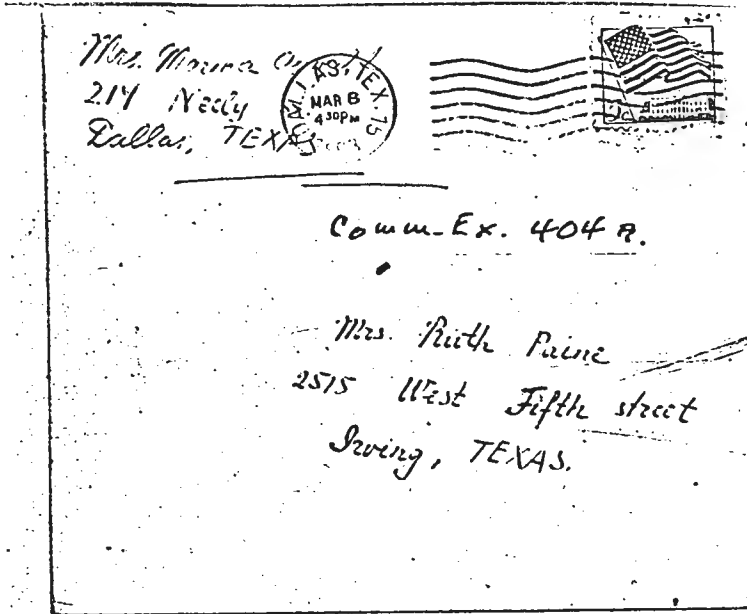 Mrs. Marina
214 Neely
Dallas, TEXAS
DALLAS, TEX. 75
MAR 8
4 30 PM
Comm. Ex. 404 A.
Mrs. Ruth Paine
2515 West Fifth street
Irving, TEXAS.